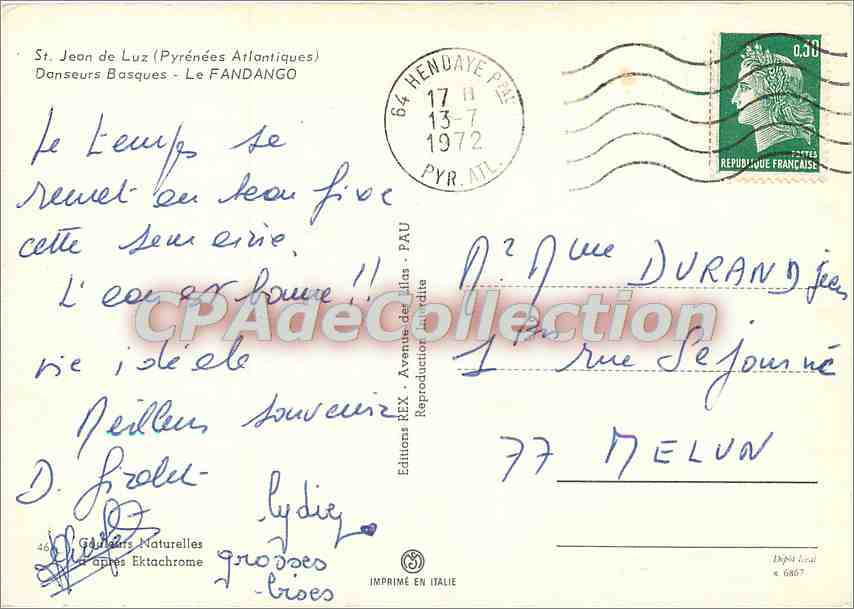 St. Jean de Luz (Pyrénées Atlantiques)
Danseurs Basques - Le FANDANGO
Le temps se
remet au beau fixe
cette semaine.
L'eau est bonne !!
vie idéale
Meilleurs souvenirs
D. Girolet
lydie
grosses
bises
46
Couleurs Naturelles
d'après Ektachrome
Editions REX - Avenue des Lilas - PAU
Reproduction Interdite
IMPRIMÉ EN ITALIE
64 HENDAYE Ppal
17 H
13-7
1972
PYR. ATL.
0,30
POSTES
REPUBLIQUE FRANÇAISE
Mr Mme DURAND Jean
1 bis rue Séjourné
77 MELUN
Dépôt légal
n. 6867
CPAdeCollection